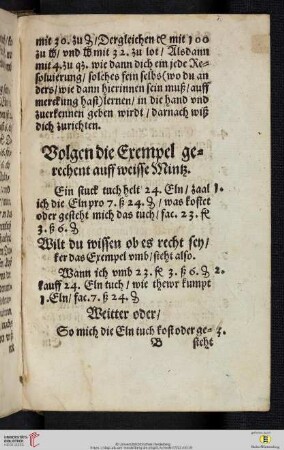 mit 30. zu ₰/ Dergleichen ꝛc mit 100
zu ℔/ vnd ℔ mit 32. zu lot/ Alsdann
mit 4. zu q3. wie dann dich ein jede Re-
soluierung/ solches sein selbs (wo du an
ders/ wie dann hierinnen sein muß/ auff
merckung hast) lernen/ in die hand vnd
zuerkennen geben wirdt/ darnach wiß
dich zurichten.
Volgen die Exempel ge-
rechent auff weisse Mintz.
Ein stuck tuch helt 24. Eln/ zaal 1.
ich die Eln pro 7. ß 24. ₰/ was kostet
oder gesteht mich das tuch/ fac. 23. fl
3. ß 6. ₰
Wilt du wissen ob es recht sey/
ker das Exempel vmb/ steht also.
Wann ich vmb 23. fl 3. ß 6. ₰ 2.
kauff 24. Eln tuch/ wie thewr kumpt
1. Eln/ fac. 7. ß 24. ₰
Weitter oder/
So mich die Eln tuch kost oder ge- 3.
B steht